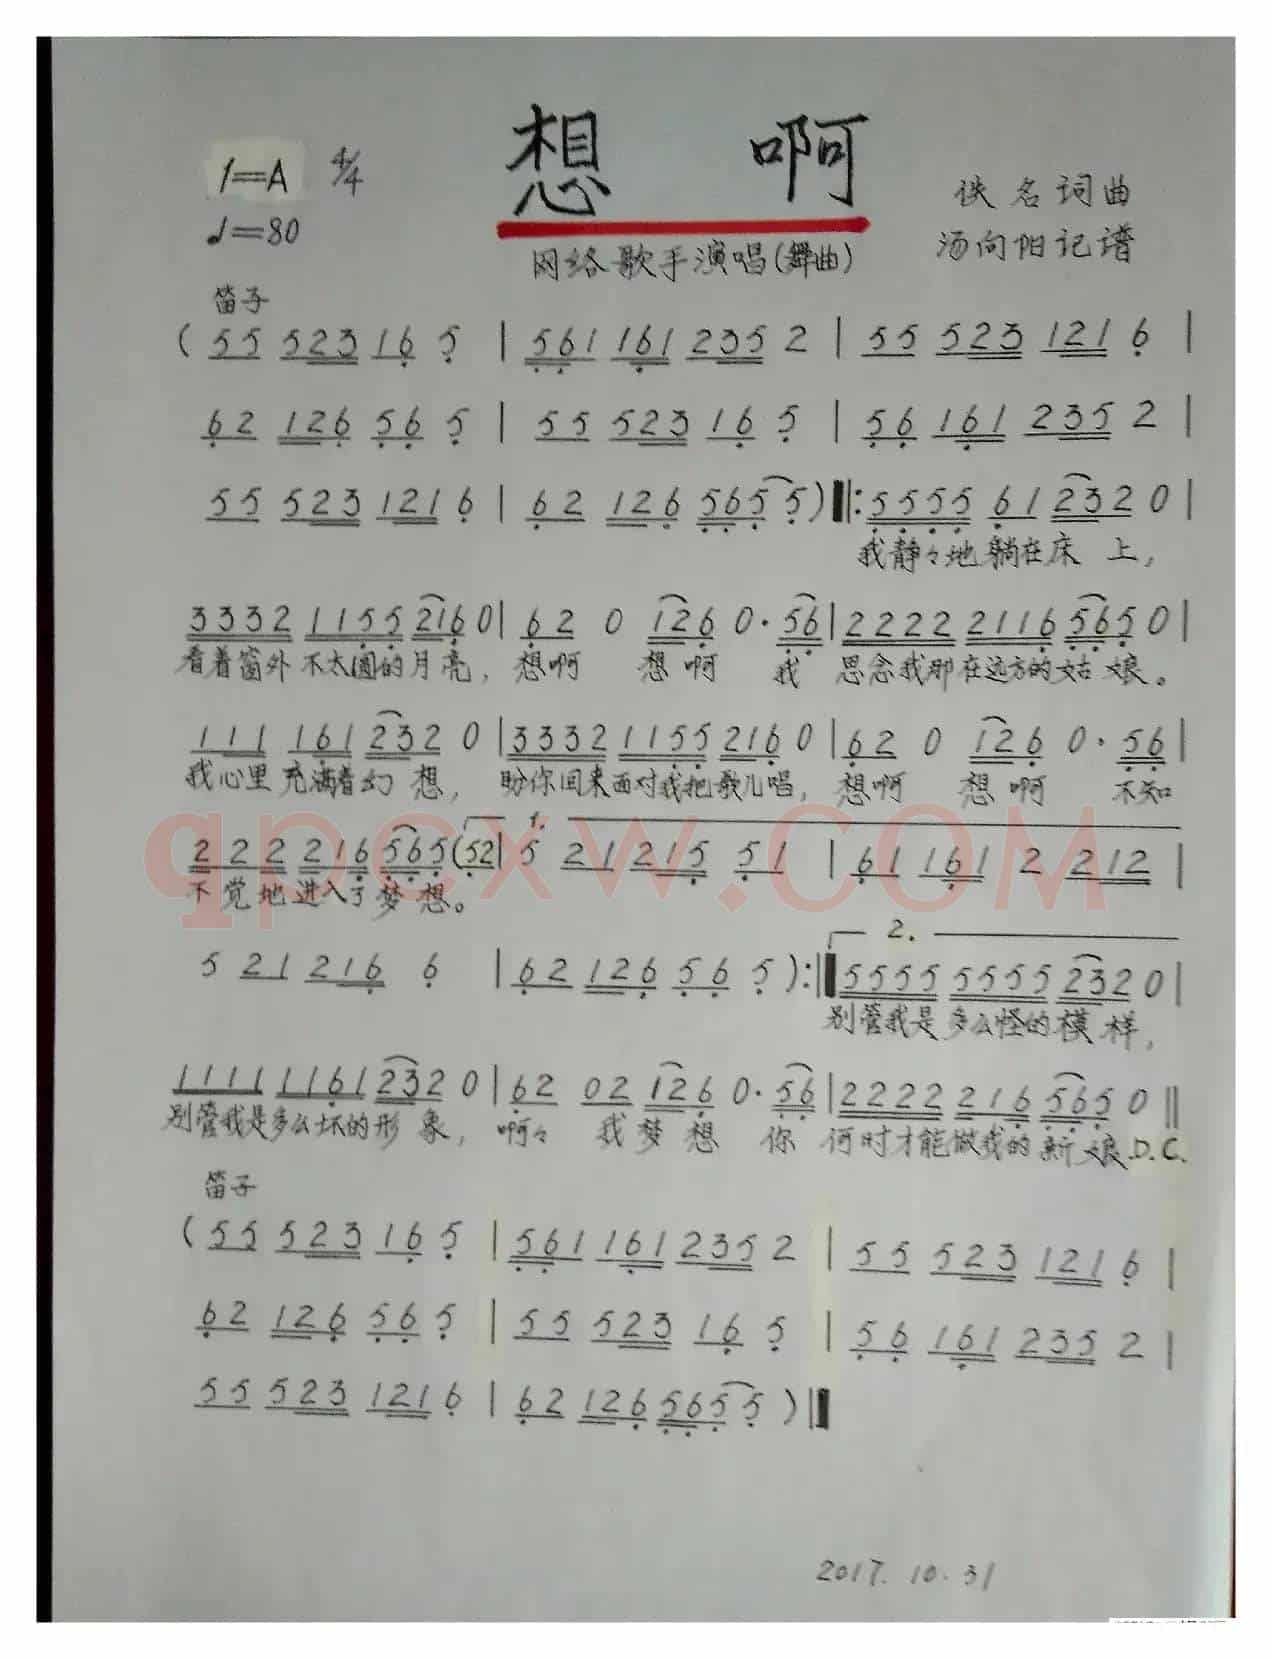 想 啊
1=A 4/4
♩=80
佚名词曲
汤向阳记谱
网络歌手演唱(舞曲)
笛子
( 55 523 16 5 | 561 161 235 2 | 55 523 121 6 |
62 126 56 5 | 55 523 16 5 | 56 161 235 2 |
55 523 121 6 | 62 126 565 5 ) ‖: 5555 61 232 0 |
我静々地躺在床 上,
3332 1155 216 0 | 62 0 126 0· 56 | 2222 2116 565 0 |
看着窗外 不太圆的月亮, 想啊 想啊 我 思念我那在远方的姑 娘。
111 161 232 0 | 3332 1155 216 0 | 62 0 126 0· 56 |
我心里 充满着幻 想, 助你回来面对我把歌儿唱, 想啊 想啊 不知
1.
222 216 565 (52 | 5 21 215 51 | 61 161 2 212 |
不觉地进入了梦想。
2.
5 21 216 6 | 62 126 56 5 ) :‖ 5555 5555 232 0 |
别管我是多么怪的模样,
1111 1161 232 0 | 62 02 126 0· 56 | 2222 216 565 0 ‖
别管我是多么坏的形 象, 啊々 我梦想 你 何时才能做我的新娘 D.C.
笛子
( 55 523 16 5 | 561 161 235 2 | 55 523 121 6 |
62 126 56 5 | 55 523 16 5 | 56 161 235 2 |
55 523 121 6 | 62 126 565 5 ) ‖
2017. 10. 31
qpcxw.COM